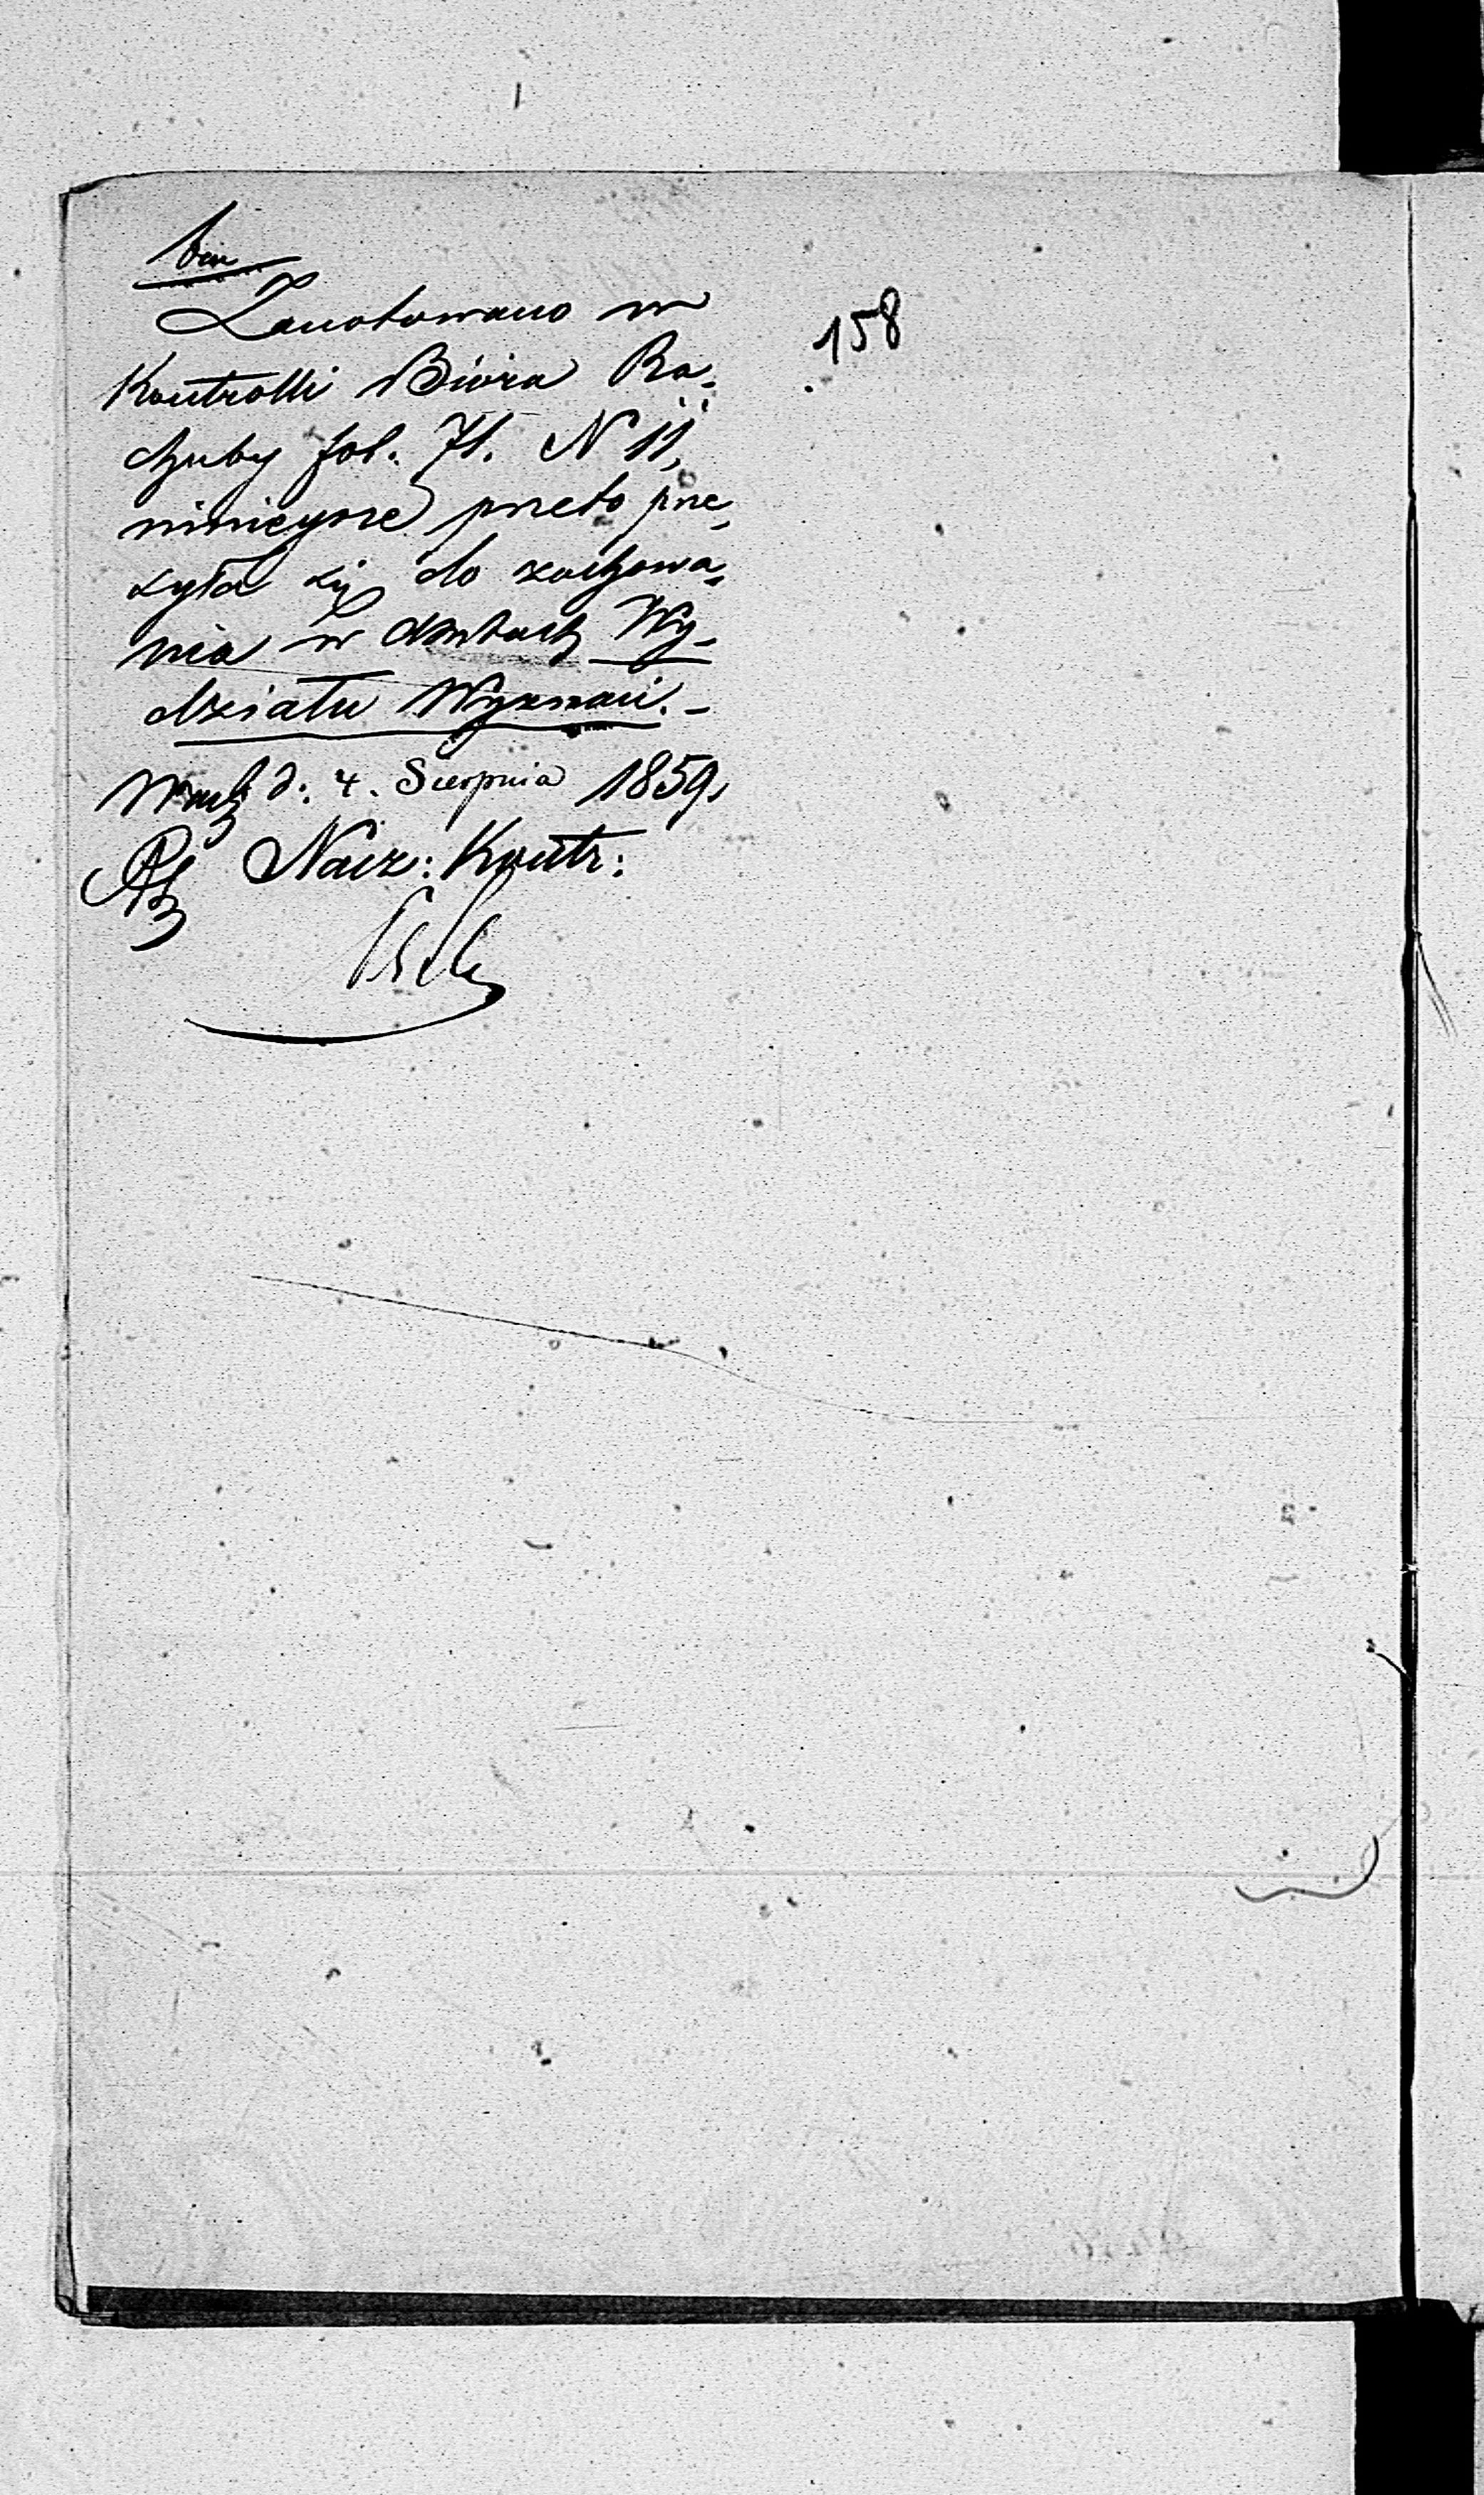 Zanotowano w
Kontrolli Bióra Ra-
chuby fol. 71. N 11,
niniejsze przeto prze-
syła się do zachowa-
nia w aktach Wy-
działu Wyznań. -
d: 4. Sierpnia 1859.
Nacz: Kontr:
158